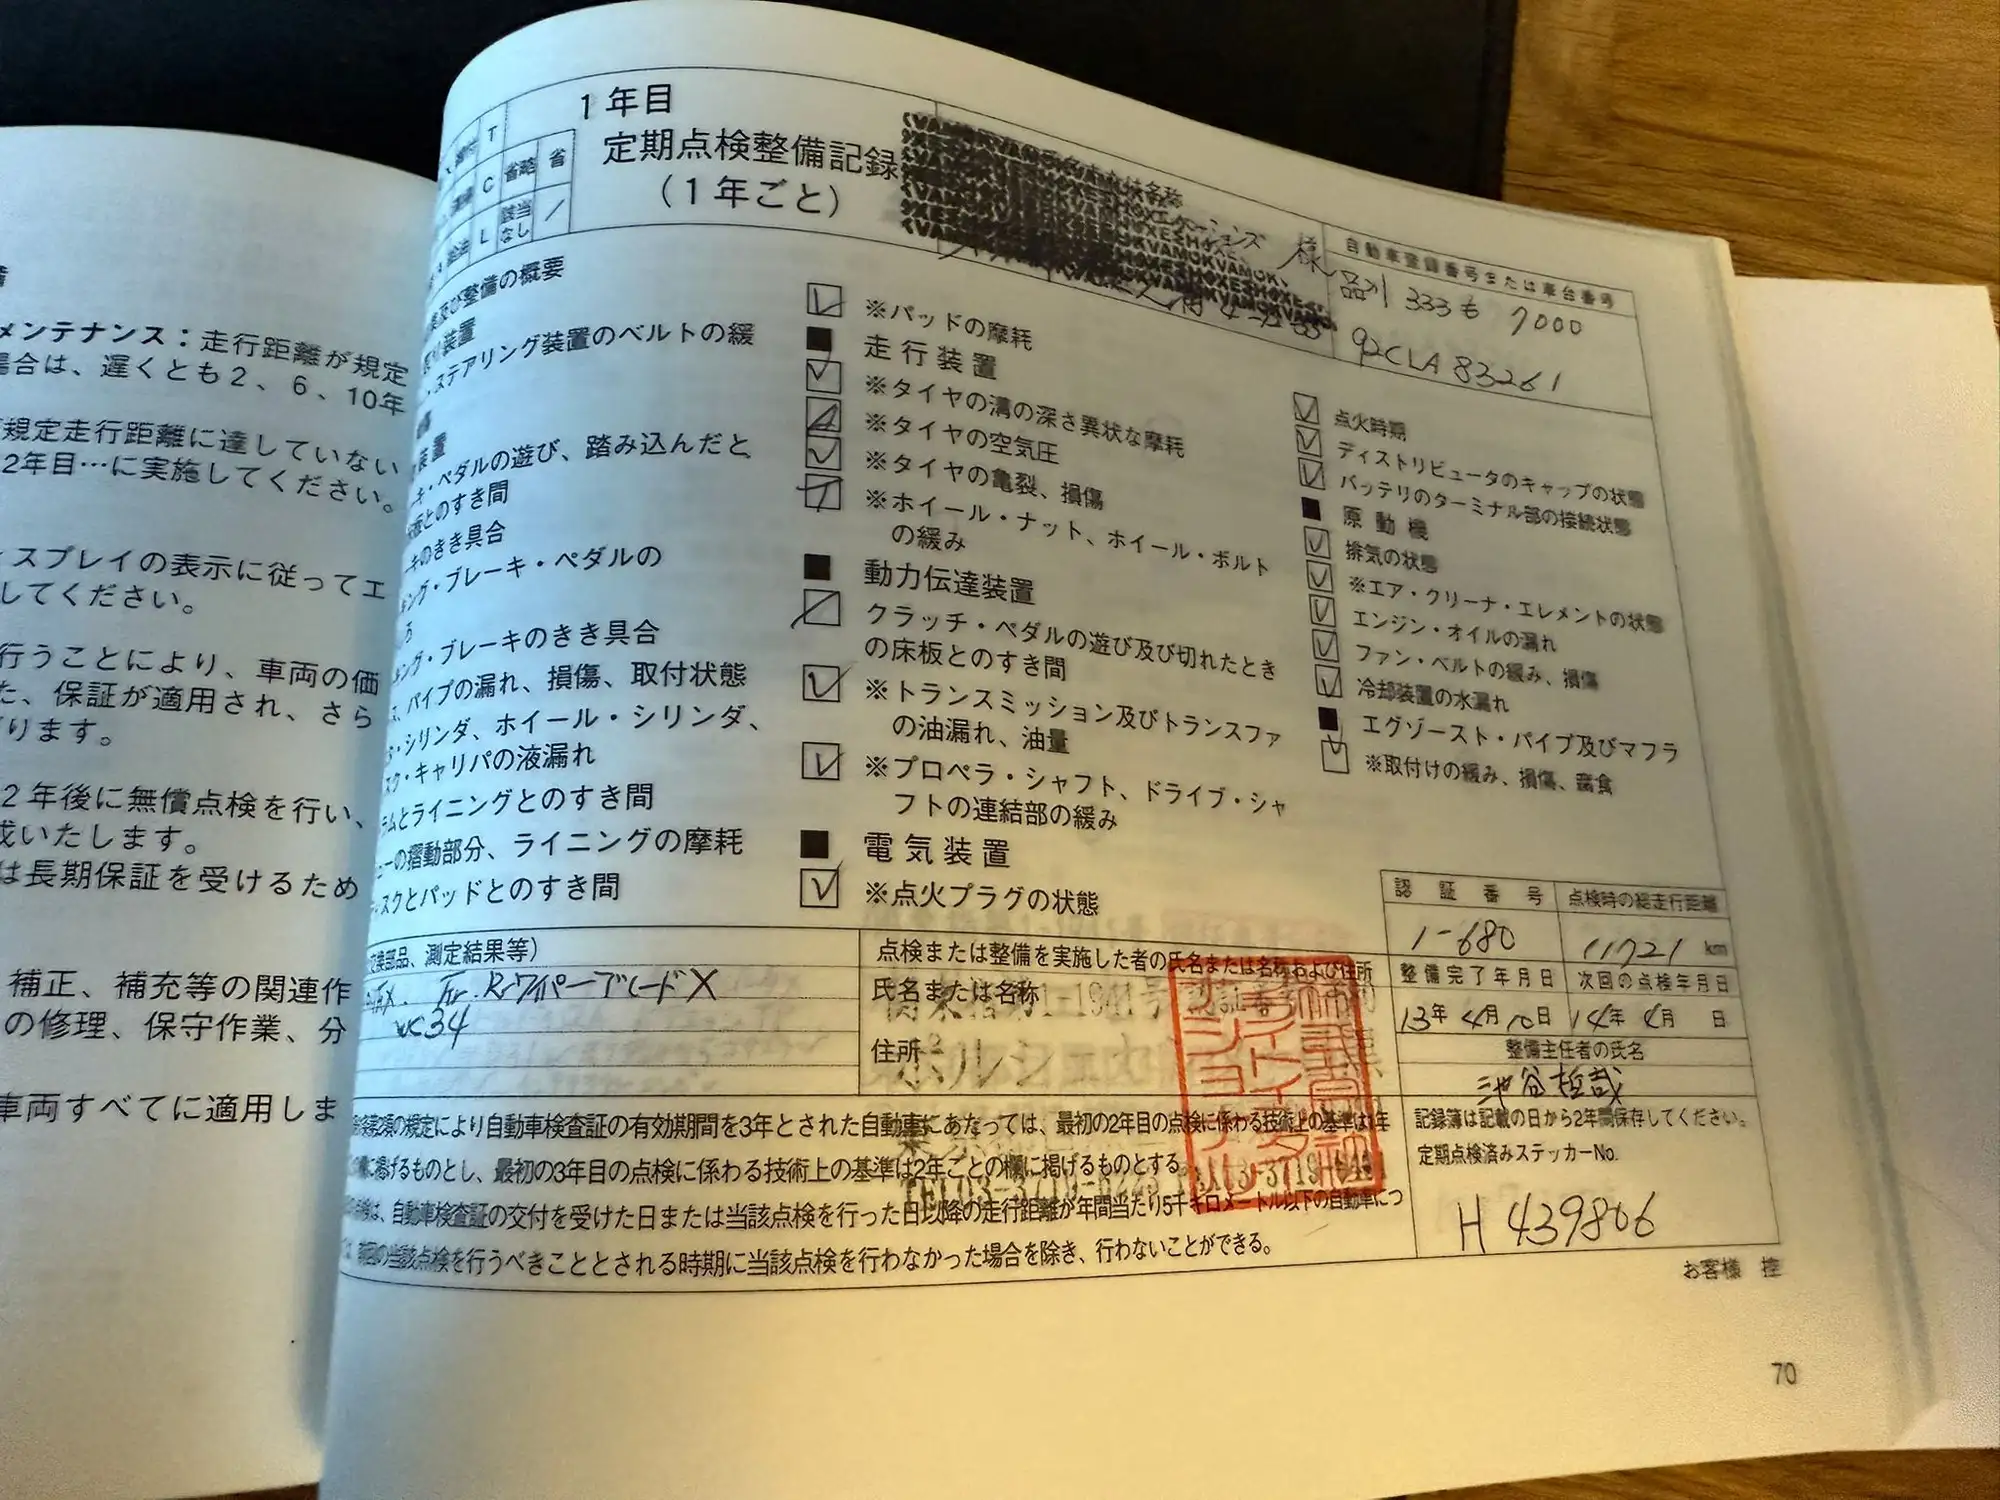 メンテナンス：走行距離が規定
場合は、遅くとも2、6、10年
規定走行距離に達していない
2年目…に実施してください。
スプレイの表示に従ってエ
してください。
行うことにより、車両の価
た、保証が適用され、さら
ります。
2年後に無償点検を行い、
成いたします。
は長期保証を受けるため
補正、補充等の関連作
の修理、保守作業、分
車両すべてに適用しま
T
C 省略 省
L 該当なし /
1年目
定期点検整備記録
（1年ごと）
様
自動車登録番号または車台番号
品川 333 も 7000
92CLA83261
及び整備の概要
装置
ステアリング装置のベルトの緩
装置
キ・ペダルの遊び、踏み込んだと
板とのすき間
キのきき具合
キング・ブレーキ・ペダルの
ろ
キング・ブレーキのきき具合
パイプの漏れ、損傷、取付状態
シリンダ、ホイール・シリンダ、
スク・キャリパの液漏れ
ラムとライニングとのすき間
ューの摺動部分、ライニングの摩耗
ィスクとパッドとのすき間
※パッドの摩耗
■ 走行装置
※タイヤの溝の深さ異状な摩耗
※タイヤの空気圧
※タイヤの亀裂、損傷
※ホイール・ナット、ホイール・ボルト
の緩み
■ 動力伝達装置
クラッチ・ペダルの遊び及び切れたとき
の床板とのすき間
※トランスミッション及びトランスファ
の油漏れ、油量
※プロペラ・シャフト、ドライブ・シャ
フトの連結部の緩み
■ 電気装置
※点火プラグの状態
点火時期
ディストリビュータのキャップの状態
バッテリのターミナル部の接続状態
■ 原動機
排気の状態
※エア・クリーナ・エレメントの状態
エンジン・オイルの漏れ
ファン・ベルトの緩み、損傷
冷却装置の水漏れ
■ エグゾースト・パイプ及びマフラ
※取付けの緩み、損傷、腐食
交換部品、測定結果等）
Fr. Rrワイパーブレード X
WC34
点検または整備を実施した者の氏名または名称および住所
氏名または名称
住所
認証番号 点検時の総走行距離
1-680 11721 km
整備完了年月日 次回の点検年月日
13年 4月 10日 14年 4月 日
整備主任者の氏名
池谷哲哉
項の規定により自動車検査証の有効期間を3年とされた自動車にあたっては、最初の2年目の点検に係わる技術上の基準は1年
に掲げるものとし、最初の3年目の点検に係わる技術上の基準は2年ごとの欄に掲げるものとする。
は、自動車検査証の交付を受けた日または当該点検を行った日以降の走行距離が年間当たり5千キロメートル以下の自動車につ
前回の当該点検を行うべきこととされる時期に当該点検を行わなかった場合を除き、行わないことができる。
記録簿は記載の日から2年間保存してください。
定期点検済みステッカーNo.
H 439806
お客様 控
70